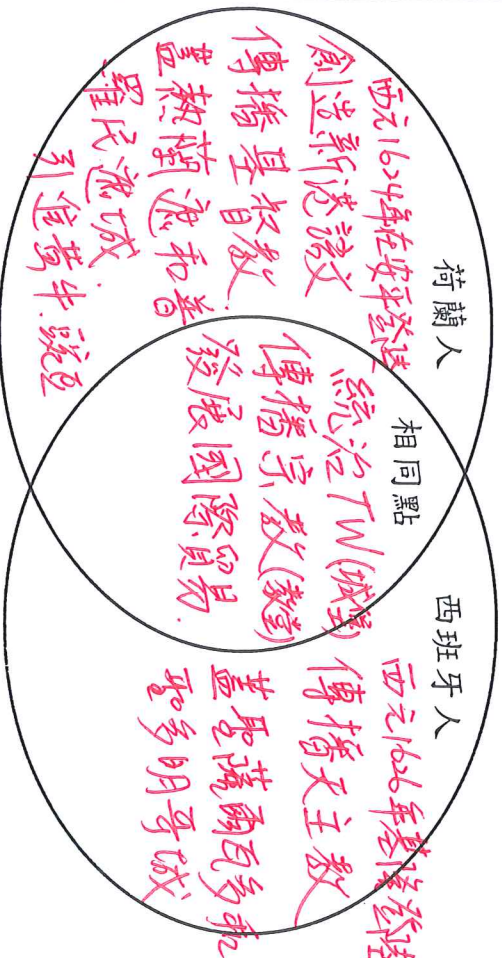 荷蘭人
西元1624年在安平登陸
創造新港語文
傳播基督教.
蓋熱蘭遮和普
羅民遮城.
引進黃牛.豌豆
相同點
統治TW(城堡)
傳播宗教(教堂)
發展國際貿易.
西班牙人
西元1626年基隆登陸
傳播天主教
蓋聖薩爾瓦多和
聖多明哥城